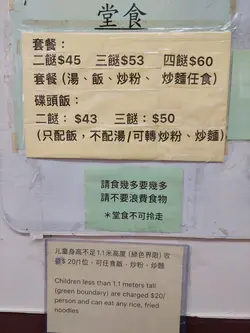 堂食
套餐：
二餸$45　三餸$53　四餸$60
套餐（湯、飯、炒粉、炒麵任食）
碟頭飯：
二餸：$43　三餸：$50
（只配飯，不配湯/可轉炒粉、炒麵）
請食幾多要幾多
請不要浪費食物
＊堂食不可拎走
儿童身高不足1.1米高度（綠色界剛）收
$ 20/1位，可任食飯，炒粉，炒麵
Children less than 1.1 meters tall
(green boundary) are charged $20/
person and can eat any rice, fried
noodles